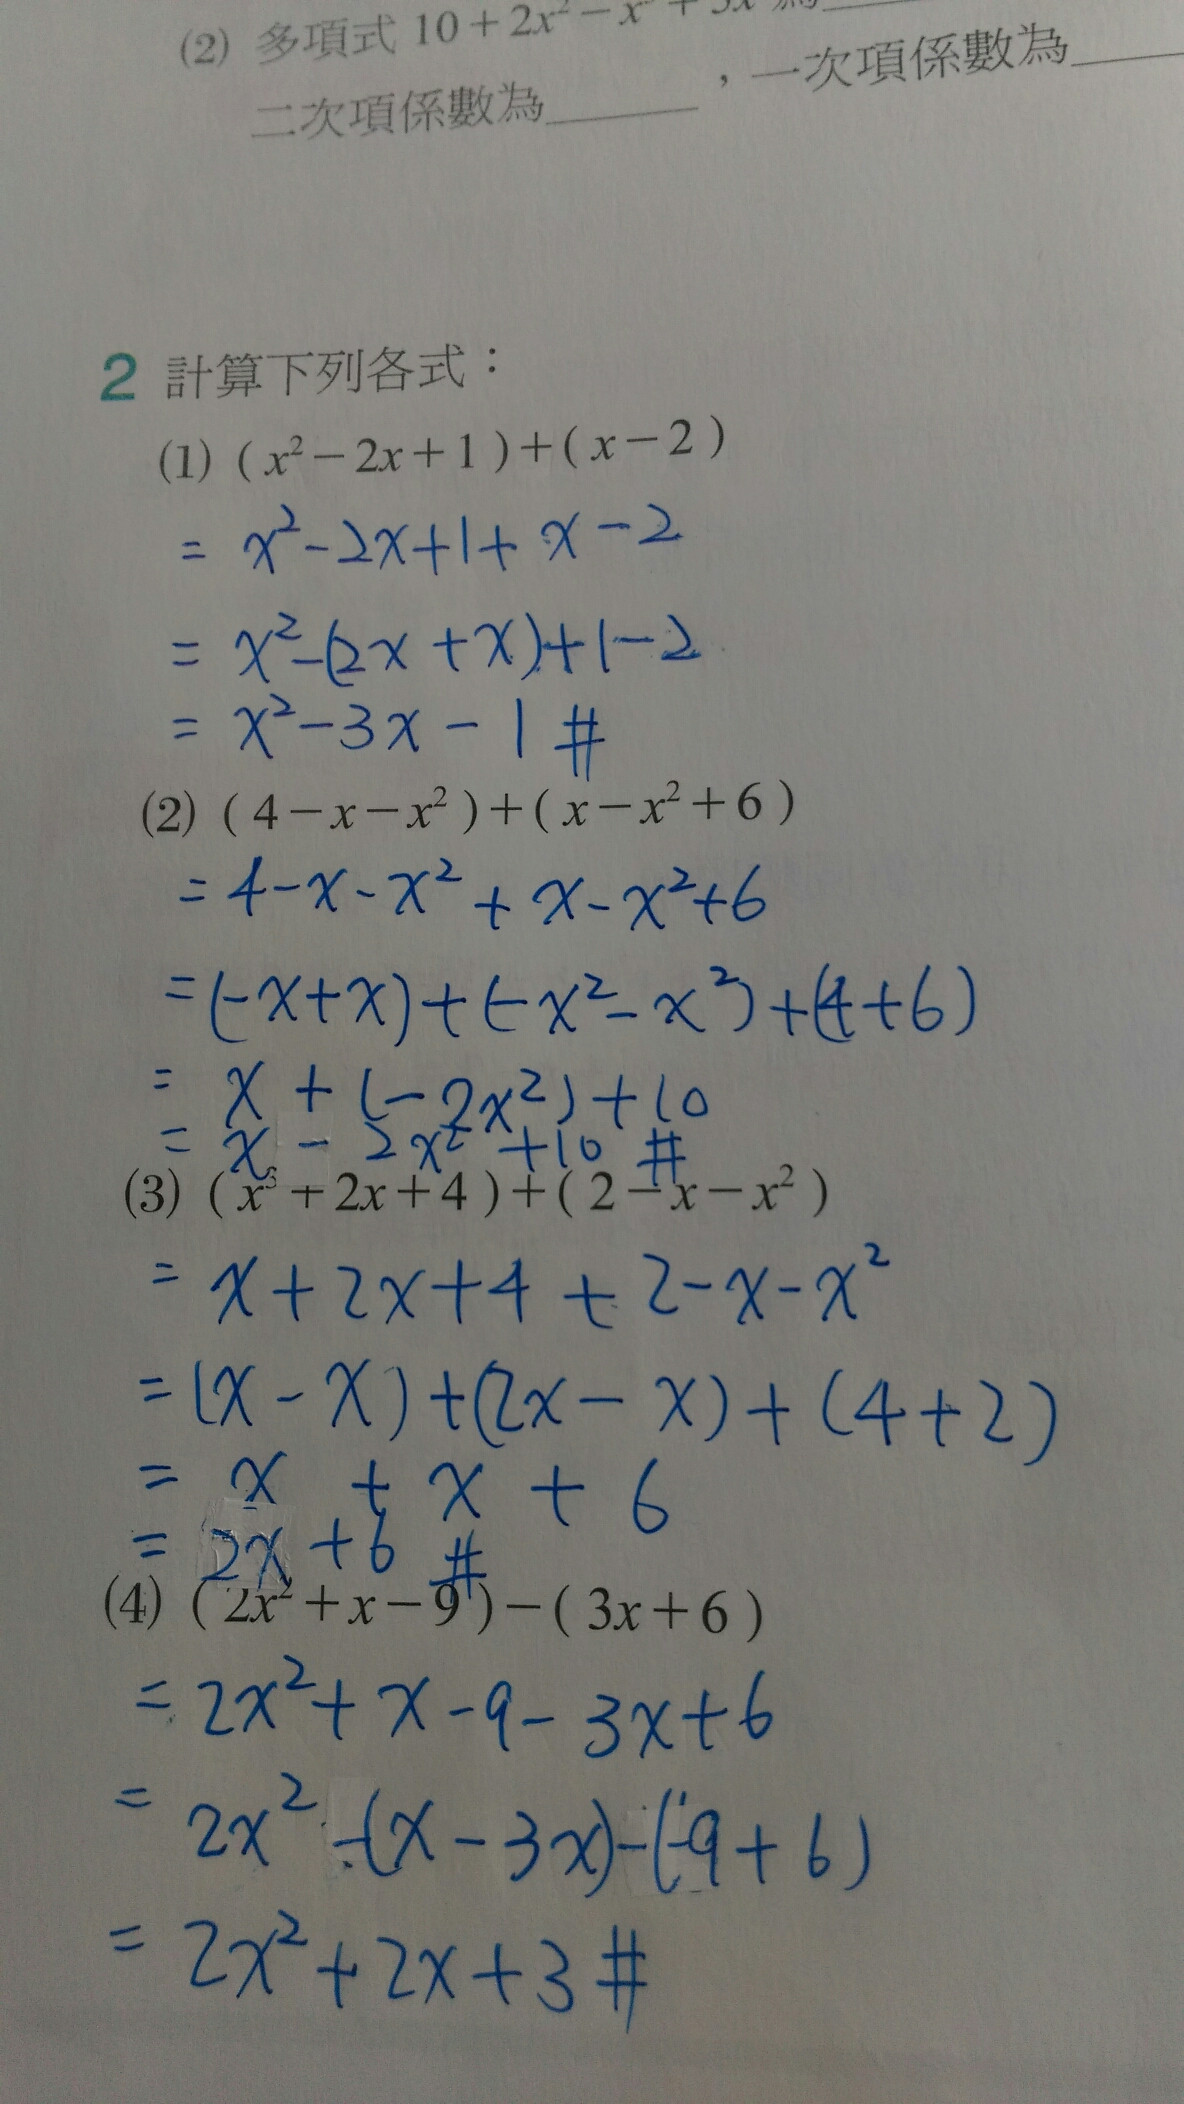 (2) 多項式 10+2x²-x
二次項係數為______,一次項係數為______
2 計算下列各式:
(1) (x²-2x+1)+(x-2)
= x²-2x+1+x-2
= x²-(2x+x)+1-2
= x²-3x-1 #
(2) (4-x-x²)+(x-x²+6)
=4-x-x²+x-x²+6
=(-x+x)+(-x²-x²)+(4+6)
= x+(-2x²)+10
= x-2x²+10 #
(3) (x³+2x+4)+(2-x-x²)
= x+2x+4+2-x-x²
=(x-x)+(2x-x)+(4+2)
= x+x+6
= 2x+6 #
(4) (2x²+x-9)-(3x+6)
= 2x²+x-9-3x+6
= 2x²-(x-3x)-(-9+6)
= 2x²+2x+3 #